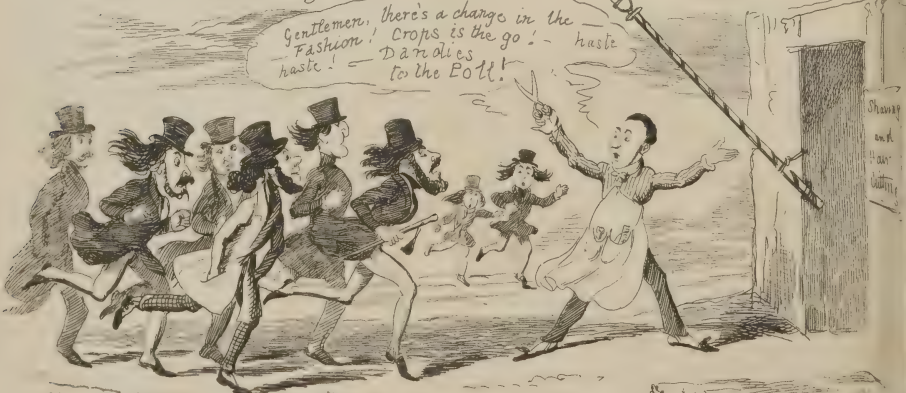 Gentlemen, there's a change in the
Fashion! Crops is the go! - haste
haste! - Dandies
to the Poll!
Shaving
and
Hair
Cutting